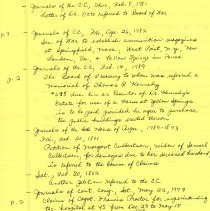 Journals of the CC, Thur, Feb. 5, 1781
Letter of Dr. Otto referred to Board of War
p. 1
Journals of CC, Fri, Apr 26, 1782
Sec of War to establish ammunition magazines
at Springfield, Mass., West Point, N.Y., New
London, Va., + Yellow Springs in Penna
p. 2
Journals of CC, Feb 14, 1784
The Board of Treasury to whom was referred a
memorial of Thomas B. Kennedy
due him as Executor of Dr. Kennedy's
Estate for use of a Farm at Yellow Springs
is to be paid provided he agree to purchase
the public buildings erected thereon
Journals of the US House of Reps. 1789-1873
Fri, Feb 20, 1801
Petition of Margaret Culbertson, widow of Samuel
Culbertson, for damages due to her deceased husband
is referred to the Comm of Claims
Sat, Feb 20, 1802
Another Petition referred to the CC
p. 2
Journals of Cont. Cong. Sat, May 22, 1779
Claims of Capt. Francis Proctor for superintending
the hospital at YS from Dec 27 to May 15